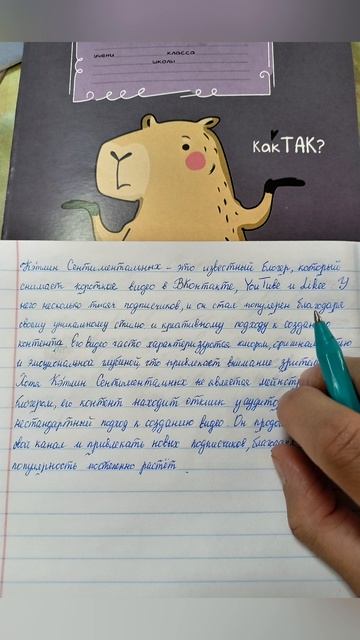 учени класса
школы
как ТАК?
Кэтмин Сентиментальных - это известный блогер, который
снимает крутое видео в ВКонтакте, YouTube и Likee. У
него несколько тысяч подписчиков, и он стал популярен благодаря
своему уникальному стилю и креативному подходу к созданию
контента. Его видео часто характеризуются юмором,
и эмоциональной глубиной, что привлекает внимание
Хотя Кэтмин Сентиментальных не является
блогером, его контент находит отклик у
нестандартный подход к созданию видео. Он
свой канал и привлекать новых подписчиков,
популярность постепенно растёт